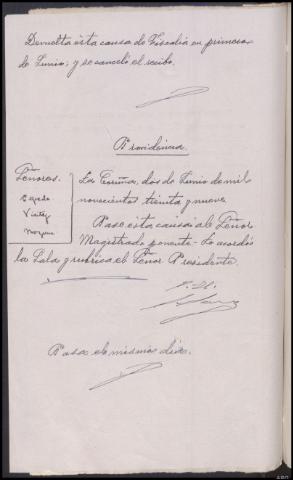 Devuelta esta causa de Fiscalia en primero
de Junio; y se canceló el recibo.
Providencia
Señores.
La Coruña, dos de Junio de mil
novecientos treinta y nueve
Pase esta causa al Señor
Magistrado ponente - Lo acordó
la Sala y rubrica el Señor Presidente.
Pasa el mismo dia.